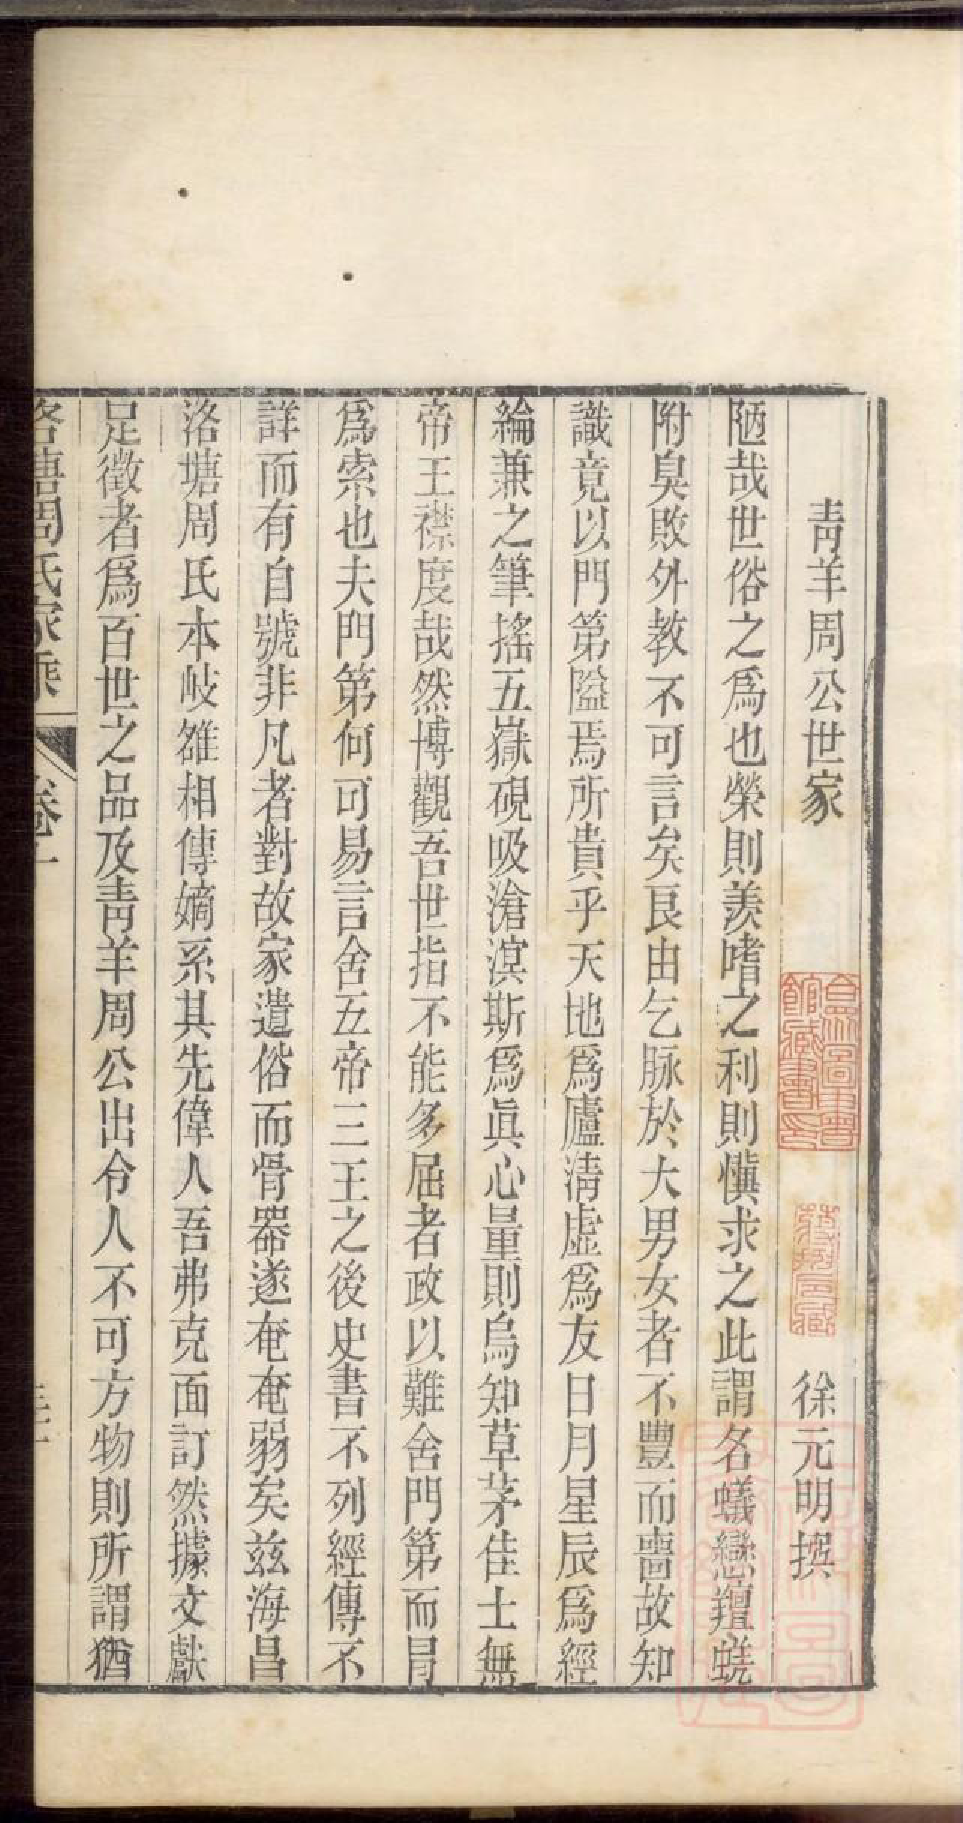 青羊周公世家
徐元明撰
陋哉世俗之爲也榮則羨嗜之利則愼求之此謂名蟻戀羶蟯
附臭敗外教不可言矣艮由乞脉於大男女者不豐而嗇故知
識竟以門第隘焉所貴乎天地爲廬淸虛爲友日月星辰爲經
綸兼之筆搖五嶽硯吸滄溟斯爲眞心量則烏知草茅佳士無
帝王襟度哉然博觀吾世指不能多屈者政以難舍門第而冐
爲索也夫門第何可易言舍五帝三王之後史書不列經傳不
詳而有自號非凡者對故家遺俗而骨器遂奄奄弱矣兹海昌
洛塘周氏本岐雒相傳嫡系其先偉人吾弗克面訂然據文獻
足徵者爲百世之品及靑羊周公出令人不可方物則所謂猶
洛塘周氏家乘
卷十